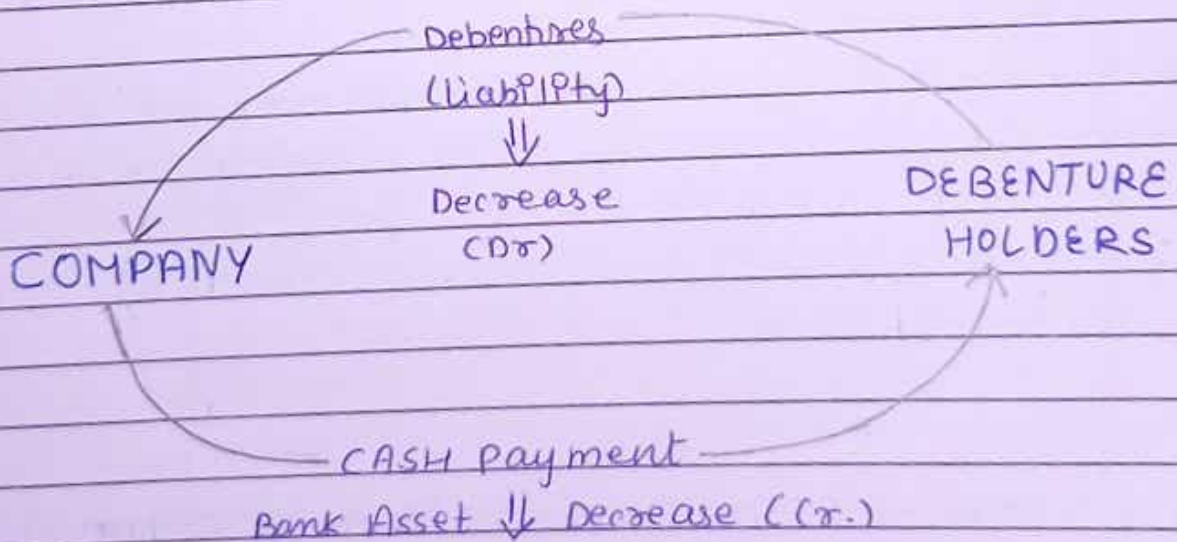 Debentures
(Liability)
⇓
Decrease
(Dr)
COMPANY
DEBENTURE
HOLDERS
CASH Payment
Bank Asset ⇓ Decrease ((r.)